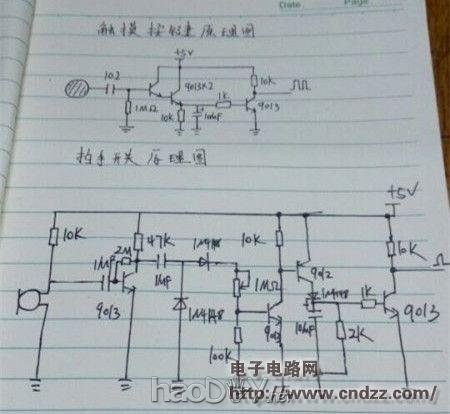 Date Page
触摸按键原理图
+5V
102
9013×2
10K
1K
9013
1MΩ
10K
10uF
拍手开关原理图
+5V
10K
2M
47K
1MF
1MF
1N4148
10K
9012
10K
1MΩ
1N4148
1K
9013
9013
1N4148
9013
10uF
2K
100K
电子电路网
www.cndzz.com
haoDIY